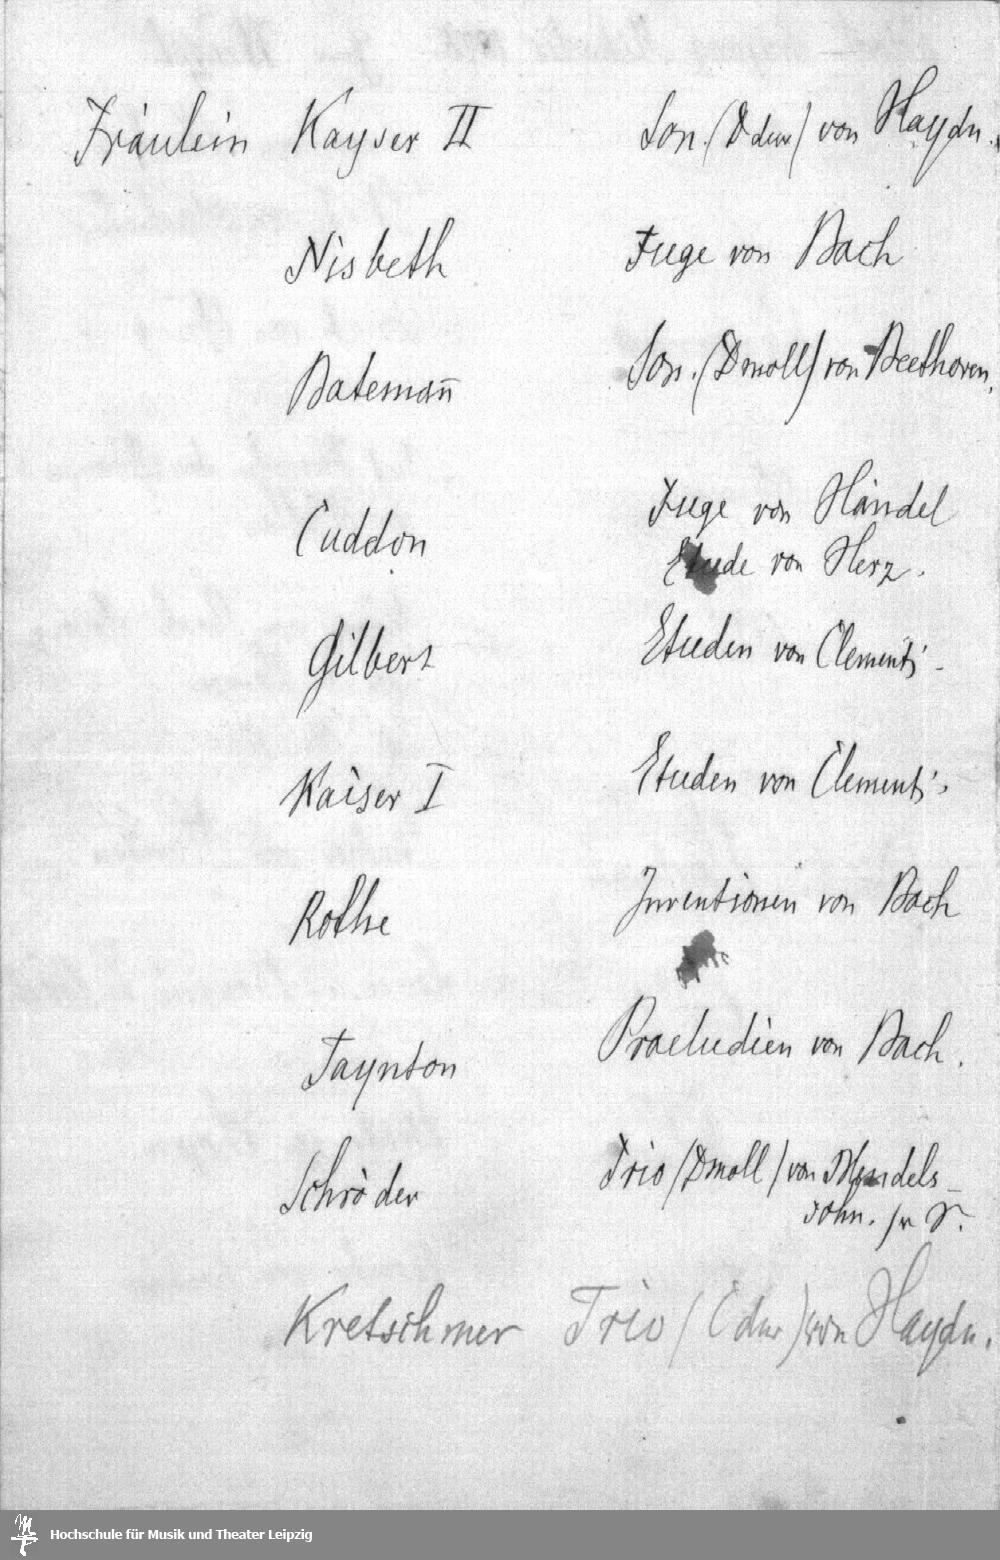 Fräulein Kayser II Son. (Ddur) von Haydn.
Nisbeth Fuge von Bach
Batemañ Son. (Dmoll) von Beethoven.
Cuddon Fuge von Händel
Etude von Herz.
Gilbert Etuden von Clementi.
Kaiser I Etuden von Clementi.
Rothe Inventionen von Bach
Taynton Praeludien von Bach.
Schröder Trio (Dmoll) von Mendels-
sohn.
Kretschmer Trio (Cdur) von Haydn.
Hochschule für Musik und Theater Leipzig